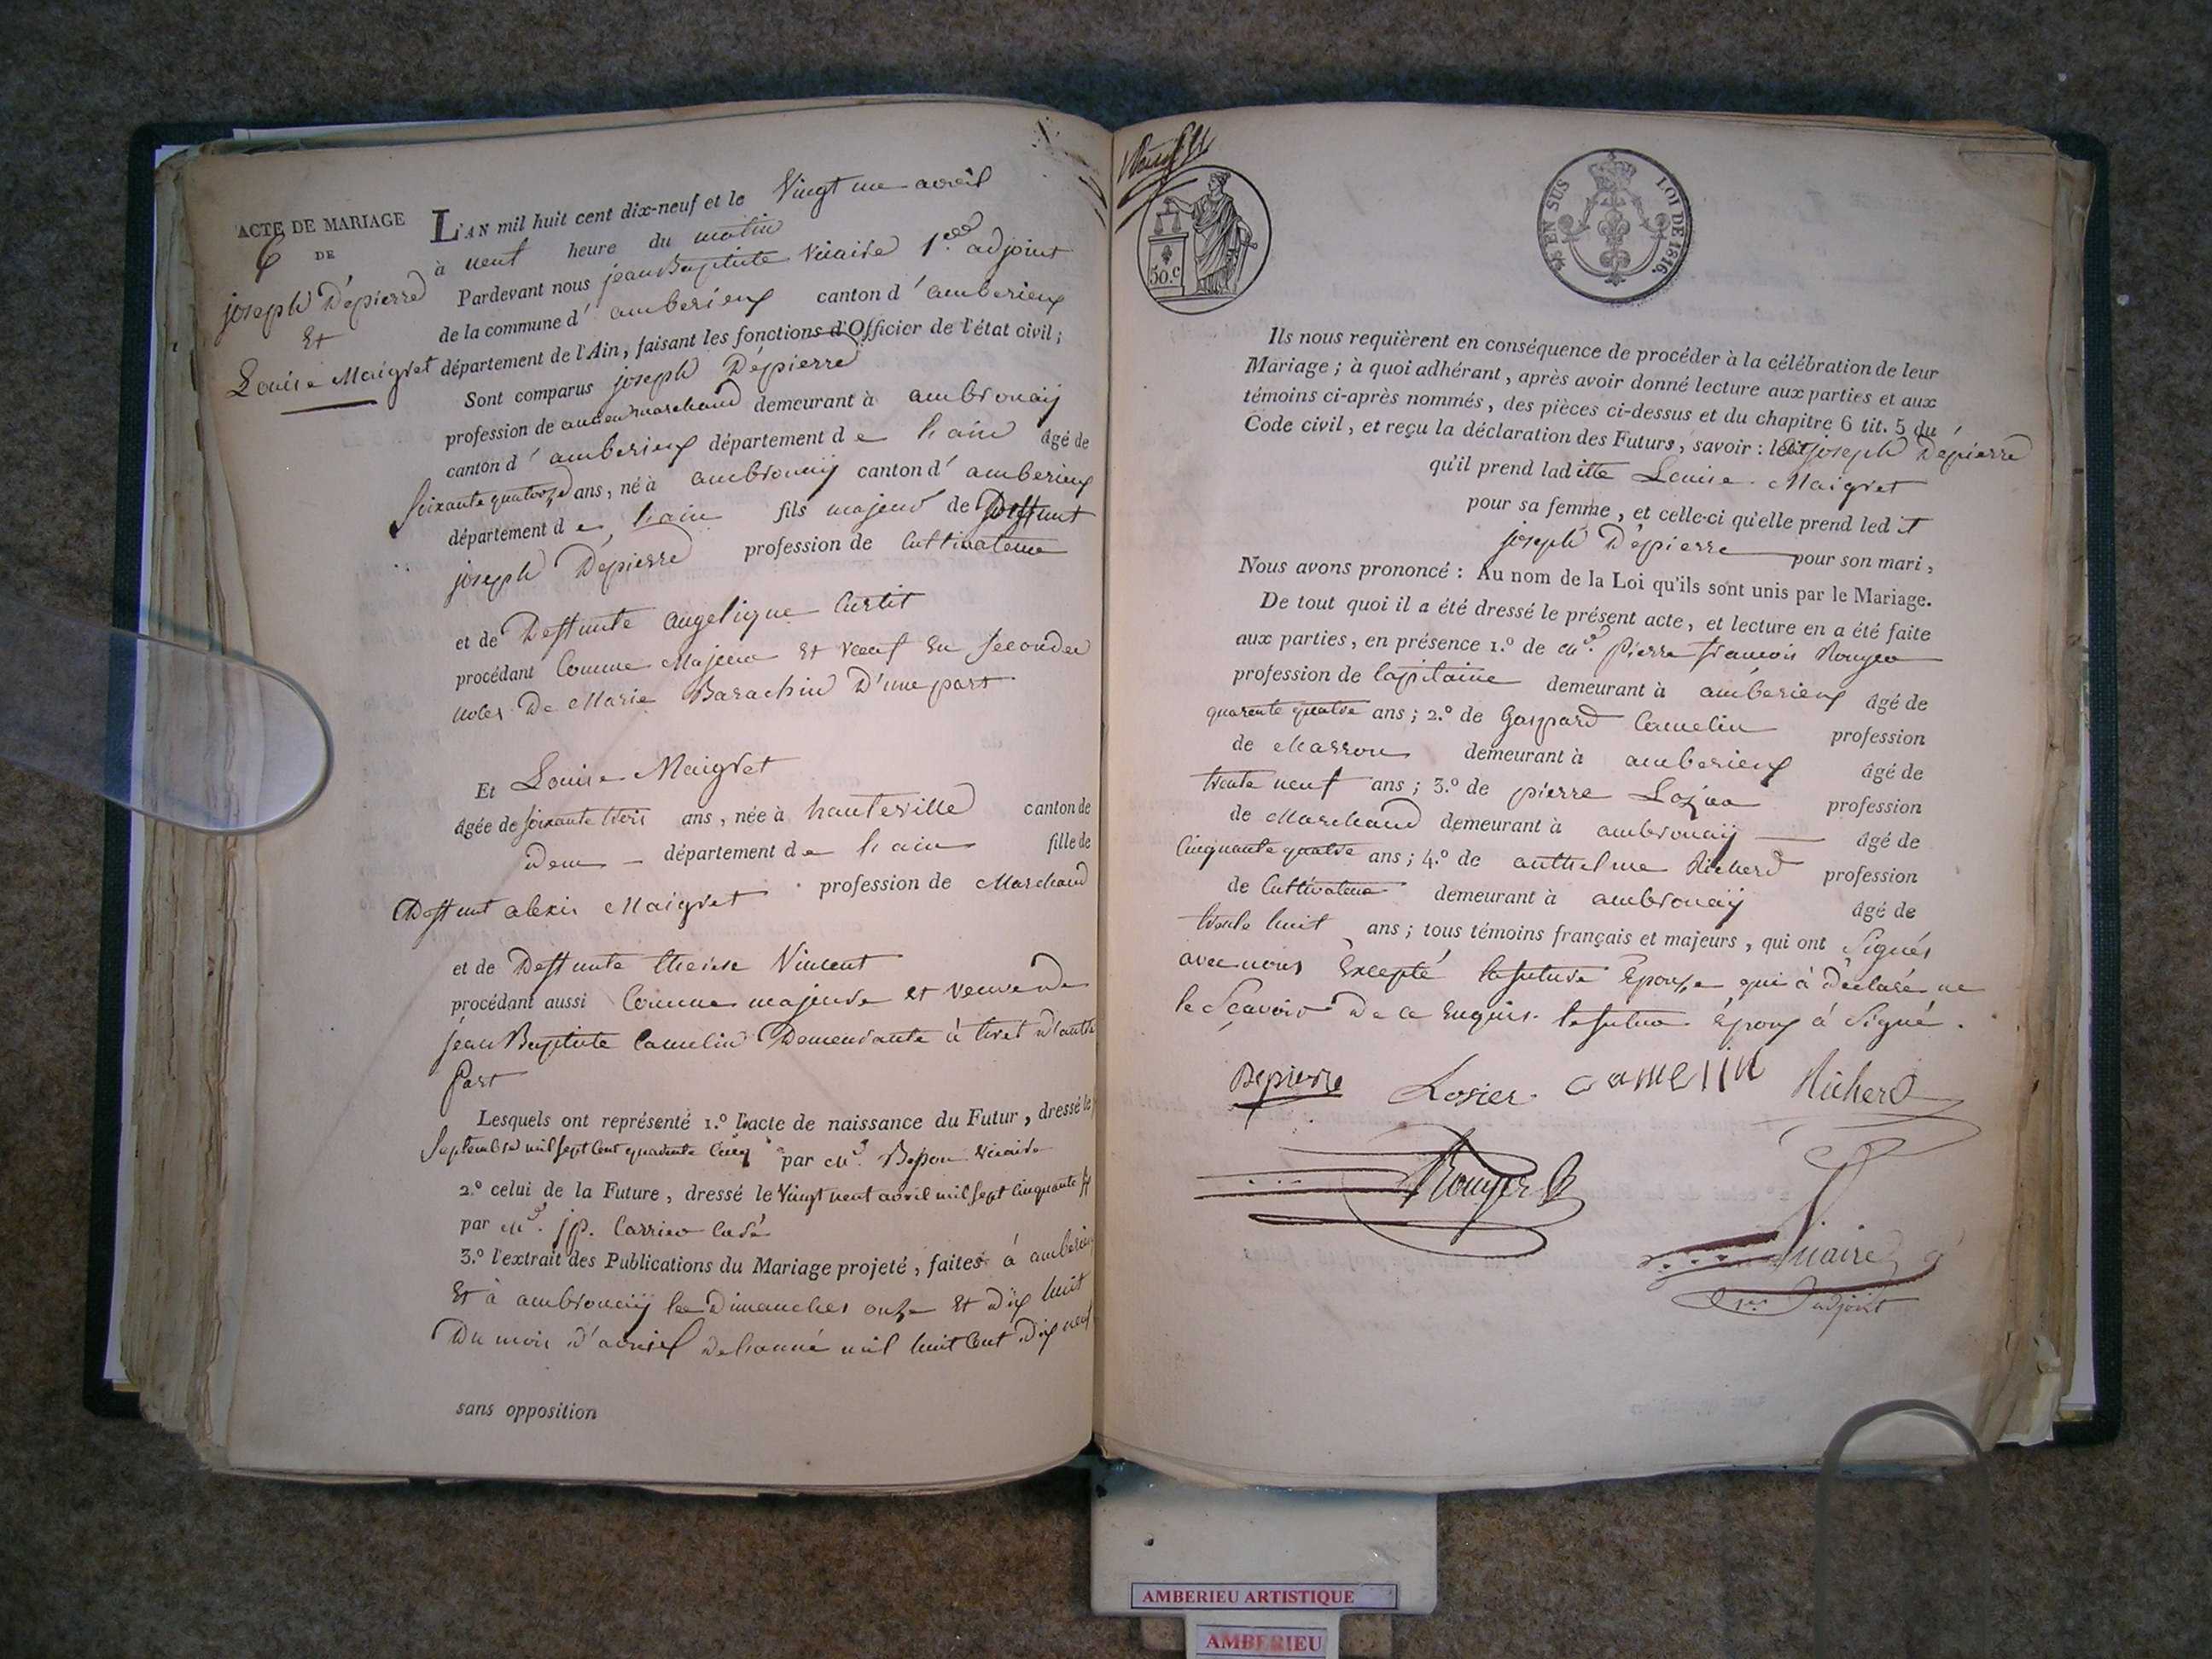 ACTE DE MARIAGE
6 DE
joseph Dépierre
Et
Louise Maigret
L'AN mil huit cent dix-neuf et le Vingt un avril
à neuf heure du matin
Pardevant nous jean Baptiste Vicaire 1.er adjoint
de la commune d' amberieux canton d' amberieux
département de l'Ain, faisant les fonctions d'Officier de l'état civil;
Sont comparus joseph Dépierre
profession de ancien marchand demeurant à ambronaij
canton d' amberieux département d e l'ain âgé de
soixante quatorze ans, né à ambronaij canton d' amberieux
département d e l'ain fils majeur de Deffunt
joseph Dépierre profession de Cultivateur
et de Deffunte angelique Curtit
procédant Comme Majeur Et Veuf En secondes
noles De Marie Barachin D'une part
Et Louise Maigret
âgée de soixante trois ans, née à hauteville canton de
Dem département d e l'ain fille de
Deffunt alexis Maigret profession de Marchand
et de Deffunte therese Vincent
procédant aussi Comme majeure et veuve De
jean Baptiste Camelin Demeurante à tiret D'autre
part
Lesquels ont représenté 1.º l'acte de naissance du Futur, dressé le
Septembre mil sept Cent quarante Cinq par Mr. Vicaire
2.º celui de la Future, dressé le Vingt neuf avril mil sept Cinquante
par Mr. jp. Carrier Curé
3.º l'extrait des Publications du Mariage projeté, faites à amberieux
Et à ambronaij les Dimanches onze Et Dix huit
Du mois D'avril De l'anné mil huit Cent Dix neuf
sans opposition
50.c
EN SUS
LOI DE 1816.
Ils nous requièrent en conséquence de procéder à la célébration de leur
Mariage; à quoi adhérant, après avoir donné lecture aux parties et aux
témoins ci-après nommés, des pièces ci-dessus et du chapitre 6 tit. 5 du
Code civil, et reçu la déclaration des Futurs, savoir: ledit joseph Depierre
qu'il prend lad itte Louise Maigret
pour sa femme, et celle-ci qu'elle prend led it
joseph Dépierre pour son mari,
Nous avons prononcé: Au nom de la Loi qu'ils sont unis par le Mariage.
De tout quoi il a été dressé le présent acte, et lecture en a été faite
aux parties, en présence 1.º de Mr. Pierre francois Rouyer
profession de Capitaine demeurant à amberieux âgé de
quarente quatre ans; 2.º de Gaspard Camelin profession
de Masson demeurant à amberieux âgé de
trente neuf ans; 3.º de pierre profession
de Marchand demeurant à ambronaij âgé de
Cinquante quatre ans; 4.º de anthelme Richerd profession
de Cultivateur demeurant à ambronaij âgé de
trente huit ans; tous témoins français et majeurs, qui ont Signés
avec nous Excepté la future Epouze qui à Déclaré ne
le Sçavoir De ce Enquis. le futur Epoux à Signé.
Depierre Losier camelin Richerd
Rouyer
Vicaire
1er adjoint
AMBERIEU ARTISTIQUE
AMBERIEU